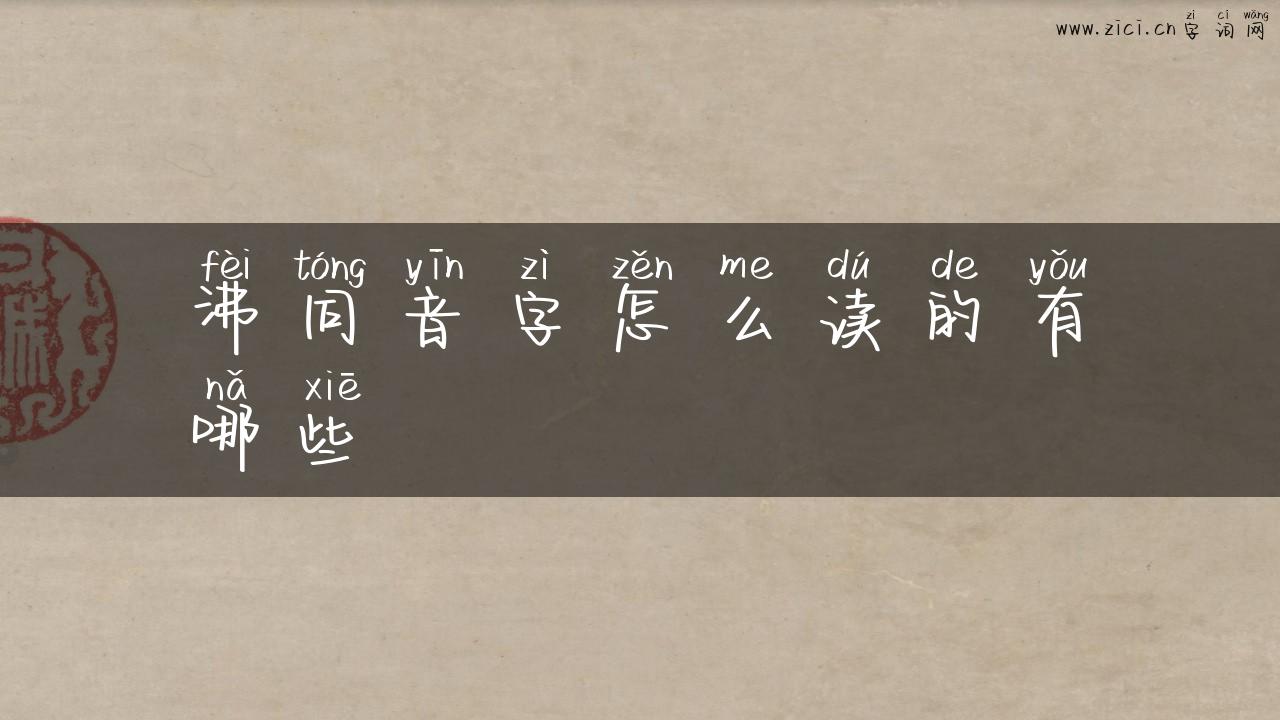 zì cí wǎng
www.zici.cn 字词网
fèi tóng yīn zì zěn me dú de yǒu
沸同音字怎么读的有
nǎ xiē
哪些